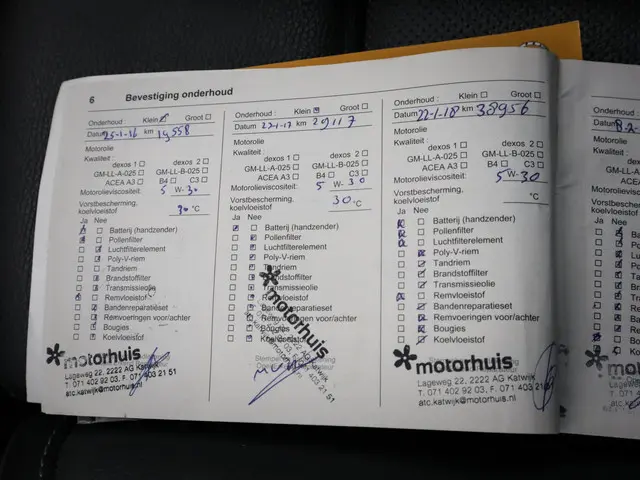 6 Bevestiging onderhoud
Onderhoud : Klein Groot
Datum 25-1-16 km 19558
Motorolie
Kwaliteit :
dexos 1 dexos 2
GM-LL-A-025 GM-LL-B-025
ACEA A3 B4 C3
Motorolieviscositeit: 5 W- 30
Vorstbescherming,
koelvloeistof 30 °C
Ja Nee
Batterij (handzender)
Pollenfilter
Luchtfilterelement
Poly-V-riem
Tandriem
Brandstoffilter
Transmissieolie
Remvloeistof
Bandenreparatieset
Remvoeringen voor/achter
Bougies
Koelvloeistof
motorhuis
Lageweg 22, 2222 AG Katwijk
T. 071 402 92 03, F. 071 403 21 51
atc.katwijk@motorhuis.nl
Onderhoud : Klein Groot
Datum 23-1-17 km 29117
Motorolie
Kwaliteit :
dexos 1 dexos 2
GM-LL-A-025 GM-LL-B-025
ACEA A3 B4 C3
Motorolieviscositeit: 5 W- 30
Vorstbescherming,
koelvloeistof : 30 °C
Ja Nee
Batterij (handzender)
Pollenfilter
Luchtfilterelement
Poly-V-riem
Tandriem
Brandstoffilter
Transmissieolie
Remvloeistof
Bandenreparatieset
Remvoeringen voor/achter
Bougies
Koelvloeistof
motorhuis
Onderhoud : Klein Groot
Datum 22-1-18 km 38956
Motorolie
Kwaliteit :
dexos 1 dexos 2
GM-LL-A-025 GM-LL-B-025
ACEA A3 B4 C3
Motorolieviscositeit: 5 W-30
Vorstbescherming,
koelvloeistof : °C
Ja Nee
Batterij (handzender)
Pollenfilter
Luchtfilterelement
Poly-V-riem
Tandriem
Brandstoffilter
Transmissieolie
Remvloeistof
Bandenreparatieset
Remvoeringen voor/achter
Bougies
Koelvloeistof
motorhuis
Lageweg 22, 2222 AG Katwijk
T. 071 402 92 03, F. 071 403 21 51
atc.katwijk@motorhuis.nl